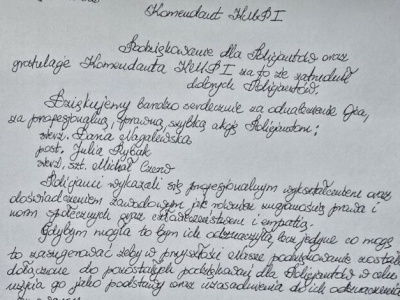 Komendant KMP I
Podziękowanie dla Policjantów oraz
gratulacje Komendanta KMP I za to że zatrudnił
dobrych Policjantów.
Dziękujemy bardzo serdecznie za odnalezienie Ojca,
za profesjonalną, sprawną, szybką akcję Policjantom:
sierż. Daria Nagalewska
post. Julia Rybak
sierż. szt. Michał Czerw
Policjanci wykazali się profesjonalnym wykształceniem oraz
doświadczeniem zawodowym jak również znajomością prawa i
norm społecznych oraz człowieczeństwem i empatią.
Gdybym mogła to bym ich odznaczyła, lecz jedyne co mogę
to zasugerować żeby w przyszłości nasze podziękowanie zostało
dołączone do pozostałych podziękowań dla Policjantów w celu
użycia go jako podstawy oraz uzasadnienia do ich odznaczenia